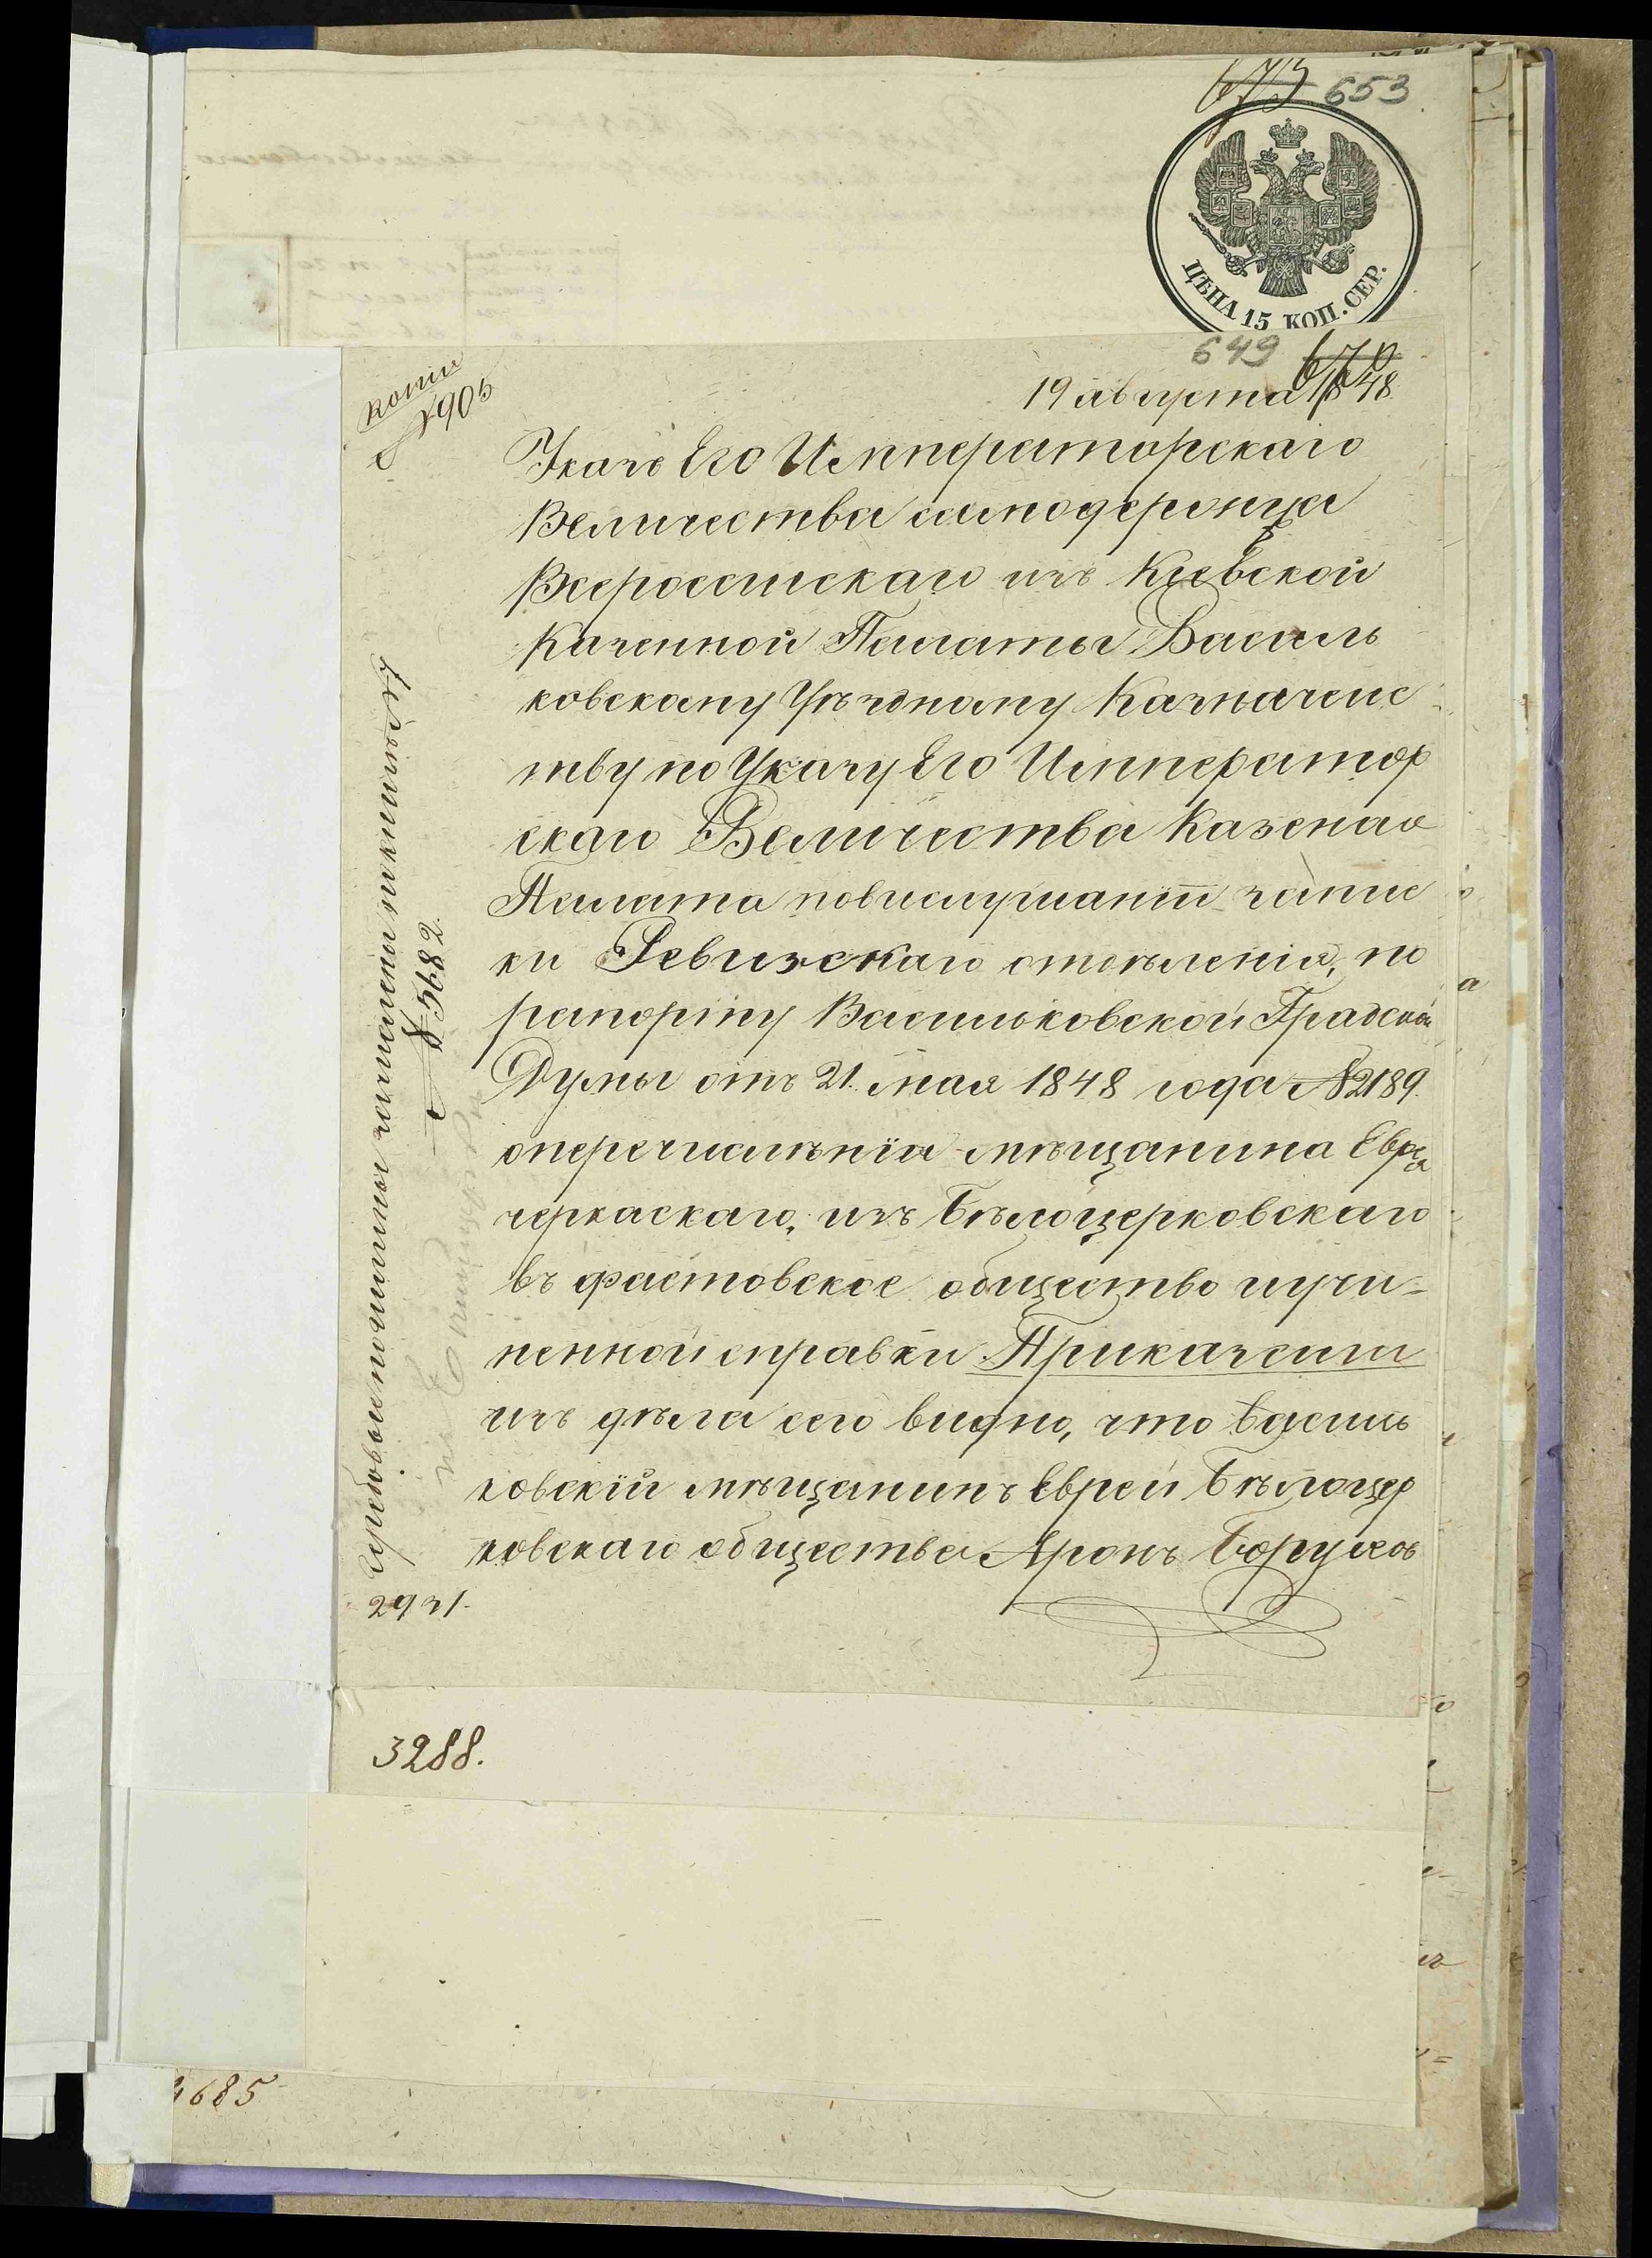 675 653
ЦѢНА 15 КОП. СЕР.
649 670
19 августа 1848
копия
№ 905
Указъ Его Императорскаго
Величества самодержца
Всероссискаго изъ Кіевской
Казенной Палаты Василь
ковскому Уѣздному Казначейс
тву по Указу Его Император
скаго Величества Казеная
Палата повислушаніи запис
ки Ревизскаго отделенія, по
рапорту Васильковской Градской
Думы отъ 21. мая 1848 года № 2189.
оперечисленіи мѣщанина Еврея
черкаскаго, изъ Бѣлоцерковскаго
въ фастовское общество иучи-
ненной справки Приказали
изъ дѣла сего видно, что Василь
ковскій мѣщанинъ Еврей Бѣлоцер
ковскаго общества Аронъ Борухов
№ 5682.
2931.
3288.
4685